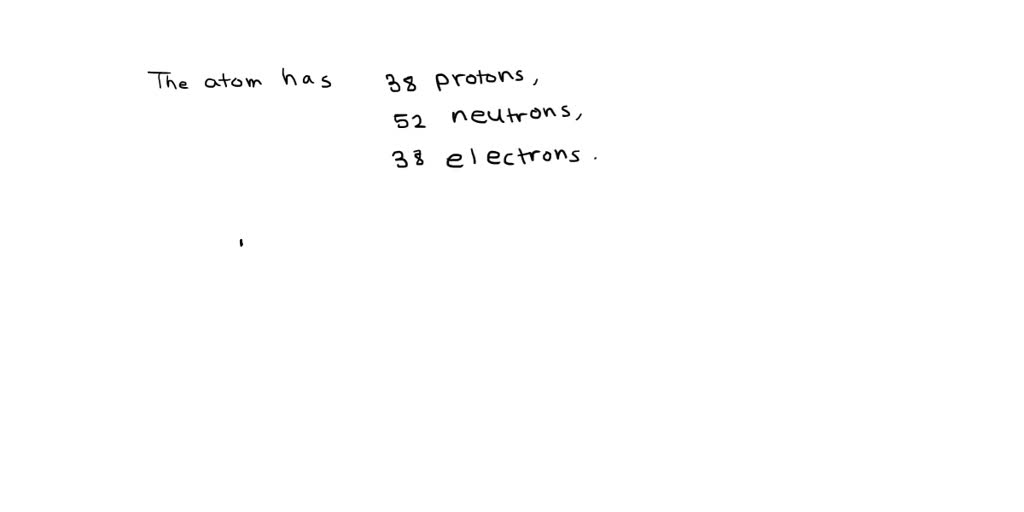 The atom has 38 protons,
52 neutrons,
38 electrons.